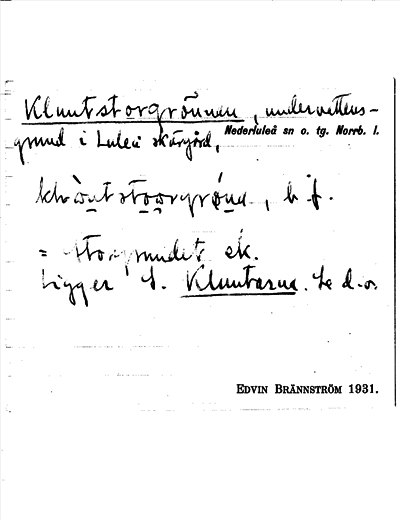 Kluntstorgrönnan, undervattens-
grund i Luleå skärgård, Nederluleå sn o. tg. Norrb. l.
b. f.
= Storgrundet ek.
Ligger S. Kluntarna. Se d. o.
EDVIN BRÄNNSTRÖM 1931.